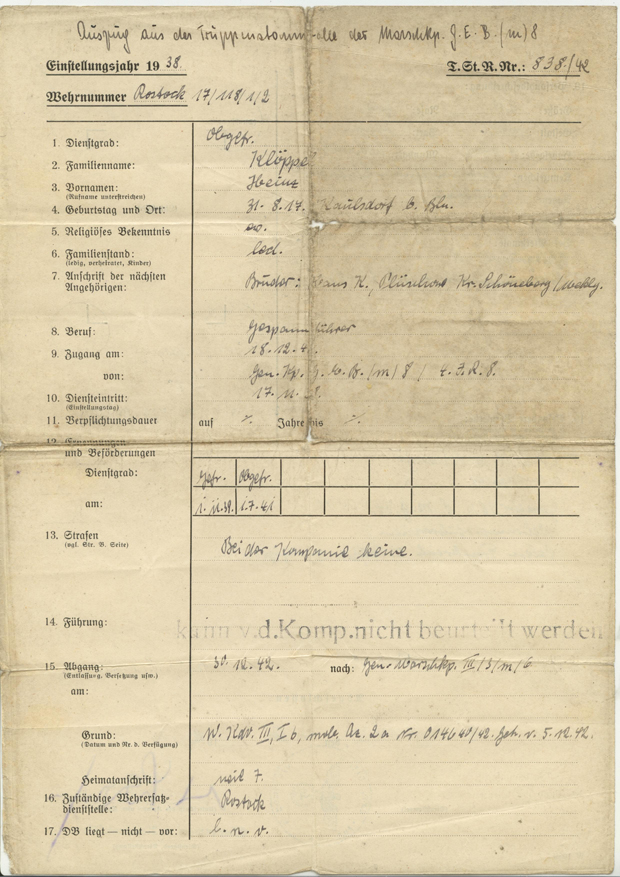 Auszug aus der Truppenstammrolle der Marschkp. J.E.B. (m) 8
Einstellungsjahr 19 38.
T.St.R.Nr.: 838./42
Wehrnummer Rostock 17/118/1/2
1. Dienstgrad: Obgefr.
2. Familienname: Klöppel
3. Vornamen: Heinz
(Rufname unterstreichen)
4. Geburtstag und Ort: 31.8.17. Kaulsdorf b. Bln.
5. Religiöses Bekenntnis ev.
6. Familienstand: led.
(ledig, verheiratet, Kinder)
7. Anschrift der nächsten Bruder: Hans K., Kr. Schöneberg/Meklg.
Angehörigen:
8. Beruf: Gespannführer
9. Zugang am: 18.12.4
von: Gen. Kp. /m/ 8 / 4.J.R.8.
10. Diensteintritt: 17.11.38.
(Einstellungstag)
11. Verpflichtungsdauer auf ./. Jahre bis ./.
12. Ernennungen
und Beförderungen
Dienstgrad: Gefr. Obgefr.
am: 1.11.39. 1.7.41
13. Strafen Bei der Kompanie keine.
(vgl. Str. B. Seite)
14. Führung: kann v.d.Komp.nicht beurteilt werden
15. Abgang: 30.12.42. nach: Gen. Marschkp. III/3/m/6
(Entlassung, Versetzung usw.)
am:
Grund: W. Kdo. III, Ib, mob. Az. 2a Nr. 014640/42. Geh. v. 5.12.42.
(Datum und Nr. d. Verfügung)
Heimatanschrift: 7.
16. Zuständige Wehrersatz- Rostock
dienststelle:
17. DB liegt — nicht — vor: l. n. v.